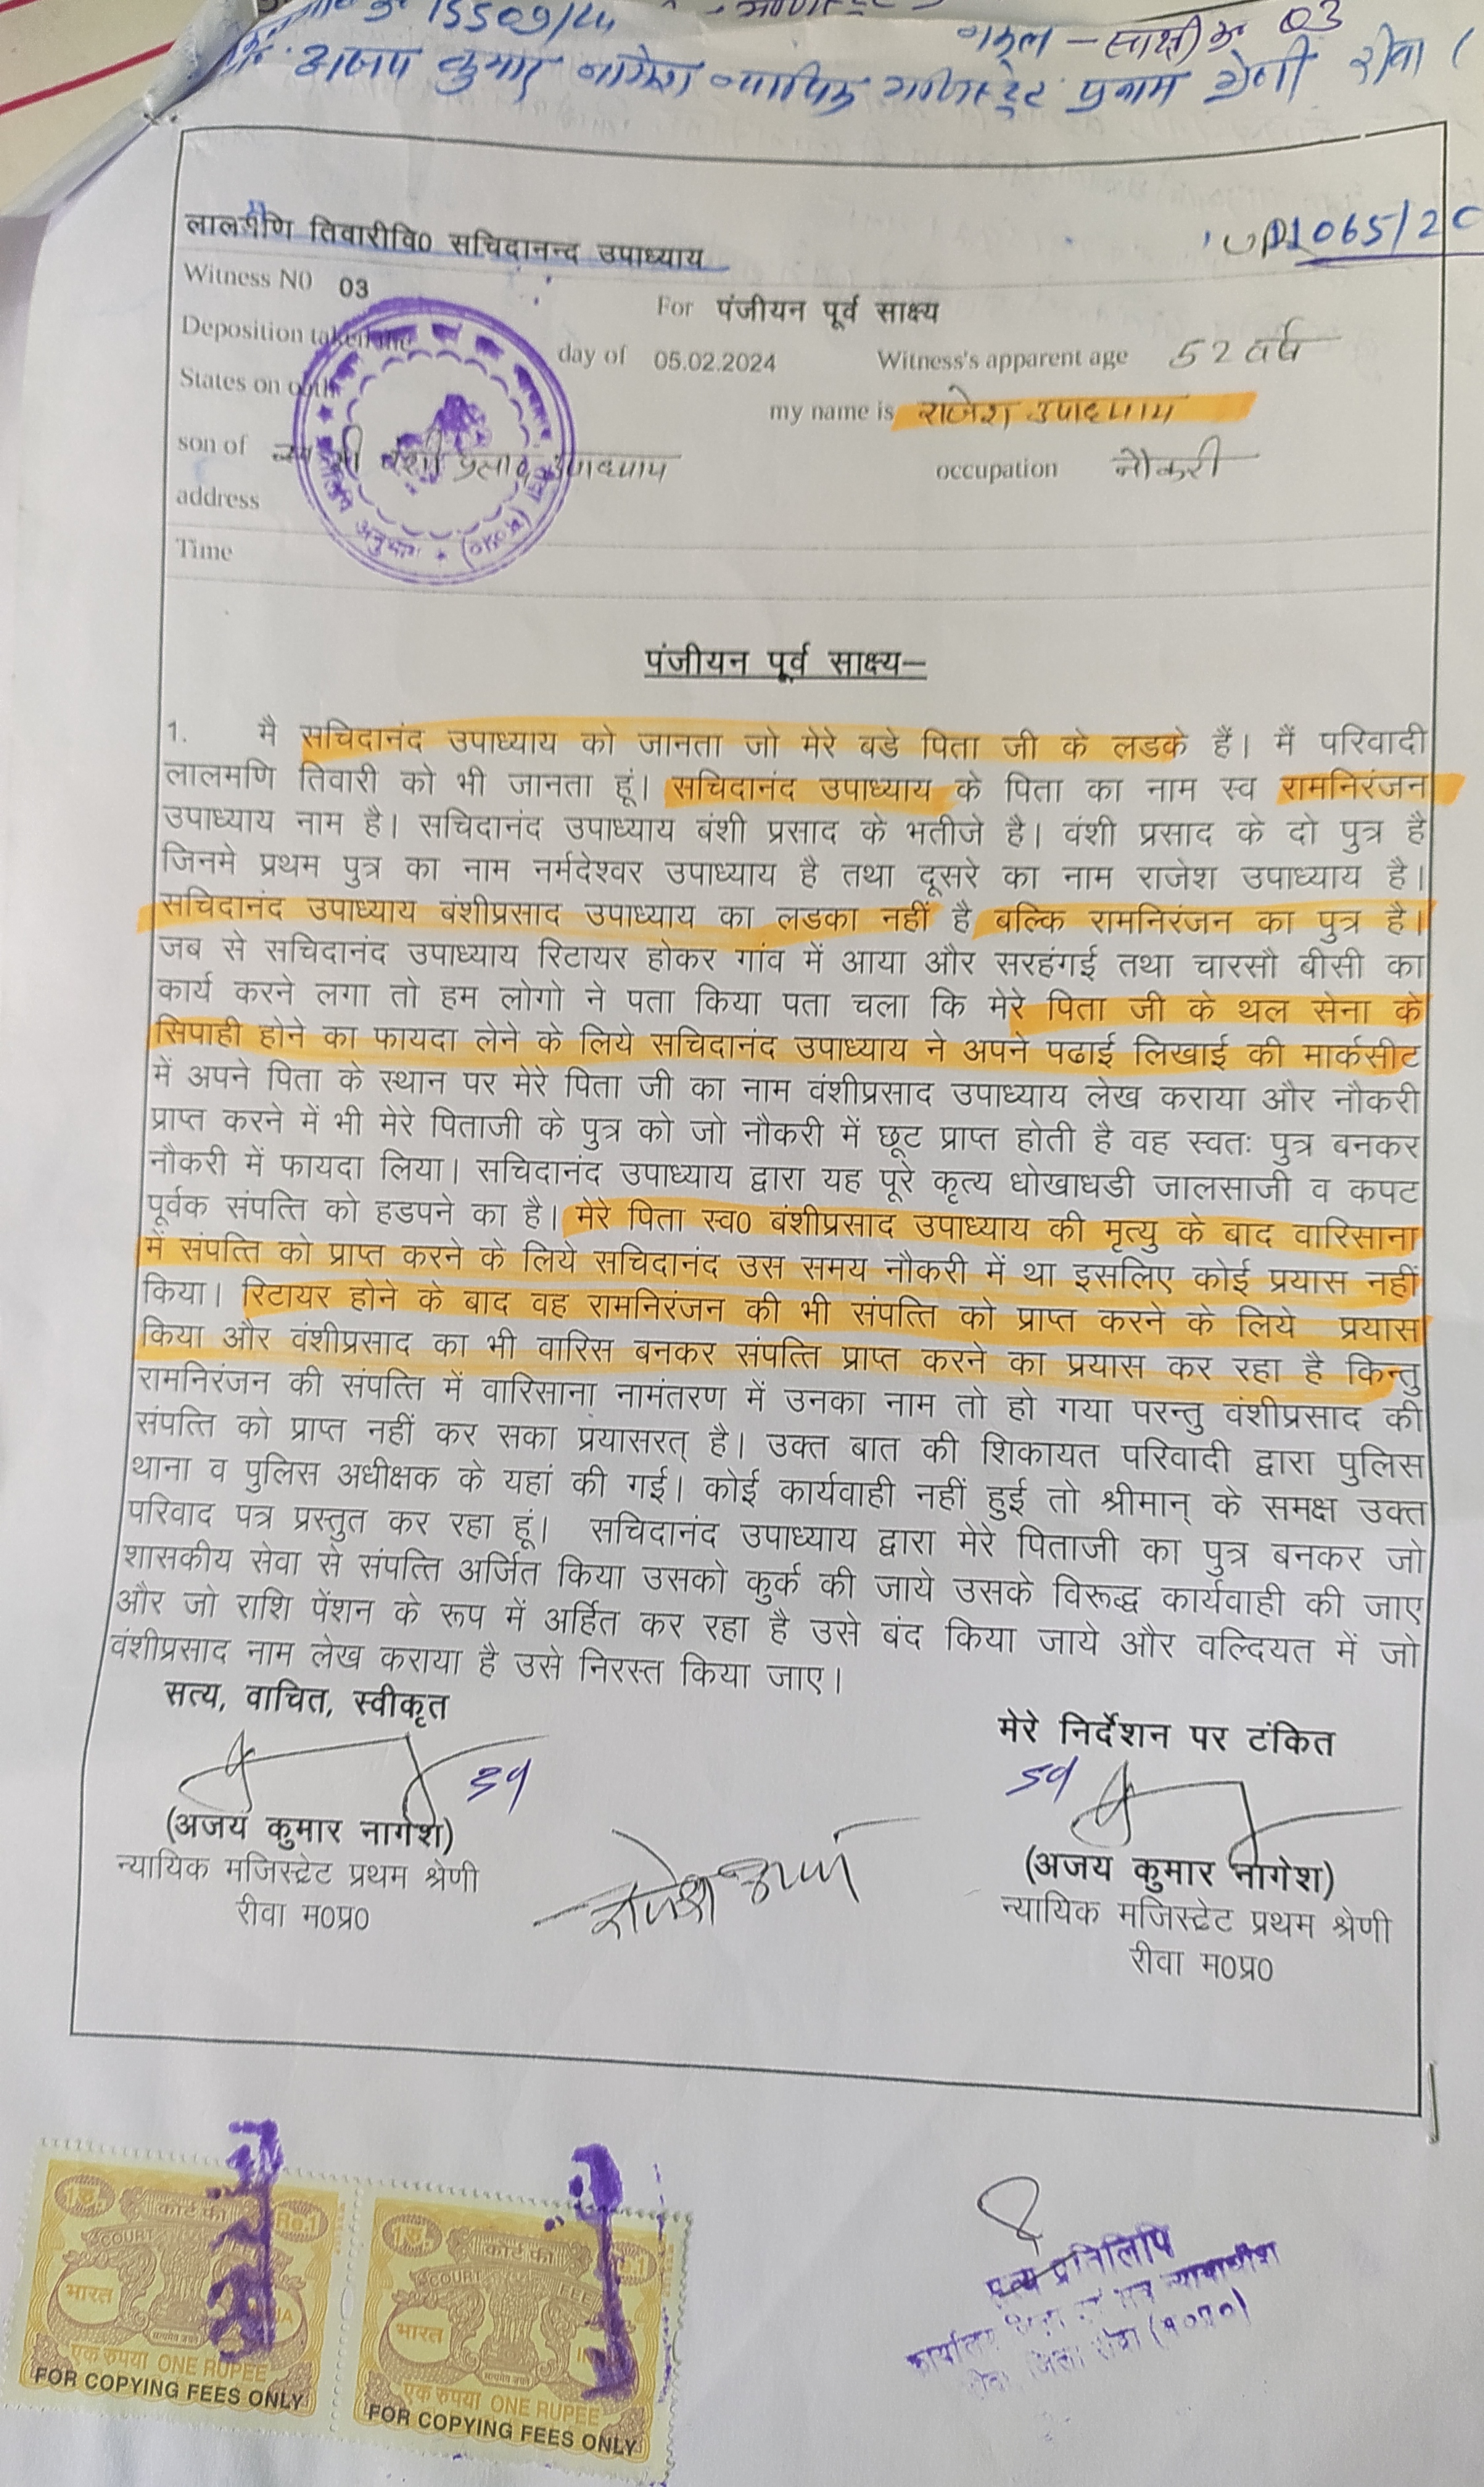 15509/24
नकल - साक्षी क्र 03
अजय कुमार नागेश न्यायिक मजिस्ट्रेट प्रथम श्रेणी रीवा (
लालमणि तिवारीवि0 सचिदानन्द उपाध्याय
1065/20
Witness N0 03
For पंजीयन पूर्व साक्ष्य
Deposition taken the day of 05.02.2024 Witness's apparent age 52 वर्ष
States on oath my name is राजेश उपाध्याय
son of स्व श्री वंशी प्रसाद उपाध्याय occupation नौकरी
address
Time
पंजीयन पूर्व साक्ष्य–
1. मै सचिदानंद उपाध्याय को जानता जो मेरे बडे पिता जी के लडके हैं। मैं परिवादी
लालमणि तिवारी को भी जानता हूं। सचिदानंद उपाध्याय के पिता का नाम स्व रामनिरंजन
उपाध्याय नाम है। सचिदानंद उपाध्याय बंशी प्रसाद के भतीजे है। वंशी प्रसाद के दो पुत्र है
जिनमे प्रथम पुत्र का नाम नर्मदेश्वर उपाध्याय है तथा दूसरे का नाम राजेश उपाध्याय है।
सचिदानंद उपाध्याय बंशीप्रसाद उपाध्याय का लडका नहीं है बल्कि रामनिरंजन का पुत्र है।
जब से सचिदानंद उपाध्याय रिटायर होकर गांव में आया और सरहंगई तथा चारसौ बीसी का
कार्य करने लगा तो हम लोगो ने पता किया पता चला कि मेरे पिता जी के थल सेना के
सिपाही होने का फायदा लेने के लिये सचिदानंद उपाध्याय ने अपने पढाई लिखाई की मार्कसीट
में अपने पिता के स्थान पर मेरे पिता जी का नाम वंशीप्रसाद उपाध्याय लेख कराया और नौकरी
प्राप्त करने में भी मेरे पिताजी के पुत्र को जो नौकरी में छूट प्राप्त होती है वह स्वतः पुत्र बनकर
नौकरी में फायदा लिया। सचिदानंद उपाध्याय द्वारा यह पूरे कृत्य धोखाधडी जालसाजी व कपट
पूर्वक संपत्ति को हडपने का है। मेरे पिता स्व0 बंशीप्रसाद उपाध्याय की मृत्यु के बाद वारिसाना
में संपत्ति को प्राप्त करने के लिये सचिदानंद उस समय नौकरी में था इसलिए कोई प्रयास नहीं
किया। रिटायर होने के बाद वह रामनिरंजन की भी संपत्ति को प्राप्त करने के लिये प्रयास
किया और वंशीप्रसाद का भी वारिस बनकर संपत्ति प्राप्त करने का प्रयास कर रहा है किन्तु
रामनिरंजन की संपत्ति में वारिसाना नामंतरण में उनका नाम तो हो गया परन्तु वंशीप्रसाद की
संपत्ति को प्राप्त नहीं कर सका प्रयासरत् है। उक्त बात की शिकायत परिवादी द्वारा पुलिस
थाना व पुलिस अधीक्षक के यहां की गई। कोई कार्यवाही नहीं हुई तो श्रीमान् के समक्ष उक्त
परिवाद पत्र प्रस्तुत कर रहा हूं। सचिदानंद उपाध्याय द्वारा मेरे पिताजी का पुत्र बनकर जो
शासकीय सेवा से संपत्ति अर्जित किया उसको कुर्क की जाये उसके विरूद्ध कार्यवाही की जाए
और जो राशि पेंशन के रूप में अर्हित कर रहा है उसे बंद किया जाये और वल्दियत में जो
वंशीप्रसाद नाम लेख कराया है उसे निरस्त किया जाए।
सत्य, वाचित, स्वीकृत
मेरे निर्देशन पर टंकित
(अजय कुमार नागेश)
न्यायिक मजिस्ट्रेट प्रथम श्रेणी
रीवा म0प्र0
(अजय कुमार नागेश)
न्यायिक मजिस्ट्रेट प्रथम श्रेणी
रीवा म0प्र0
1रु. कोर्ट फी Re.1
COURT FEE
भारत
एक रुपया ONE RUPEE
FOR COPYING FEES ONLY
1रु. कोर्ट फी
COURT FEE
भारत
एक रुपया ONE RUPEE
FOR COPYING FEES ONLY
सत्य प्रतिलिपि